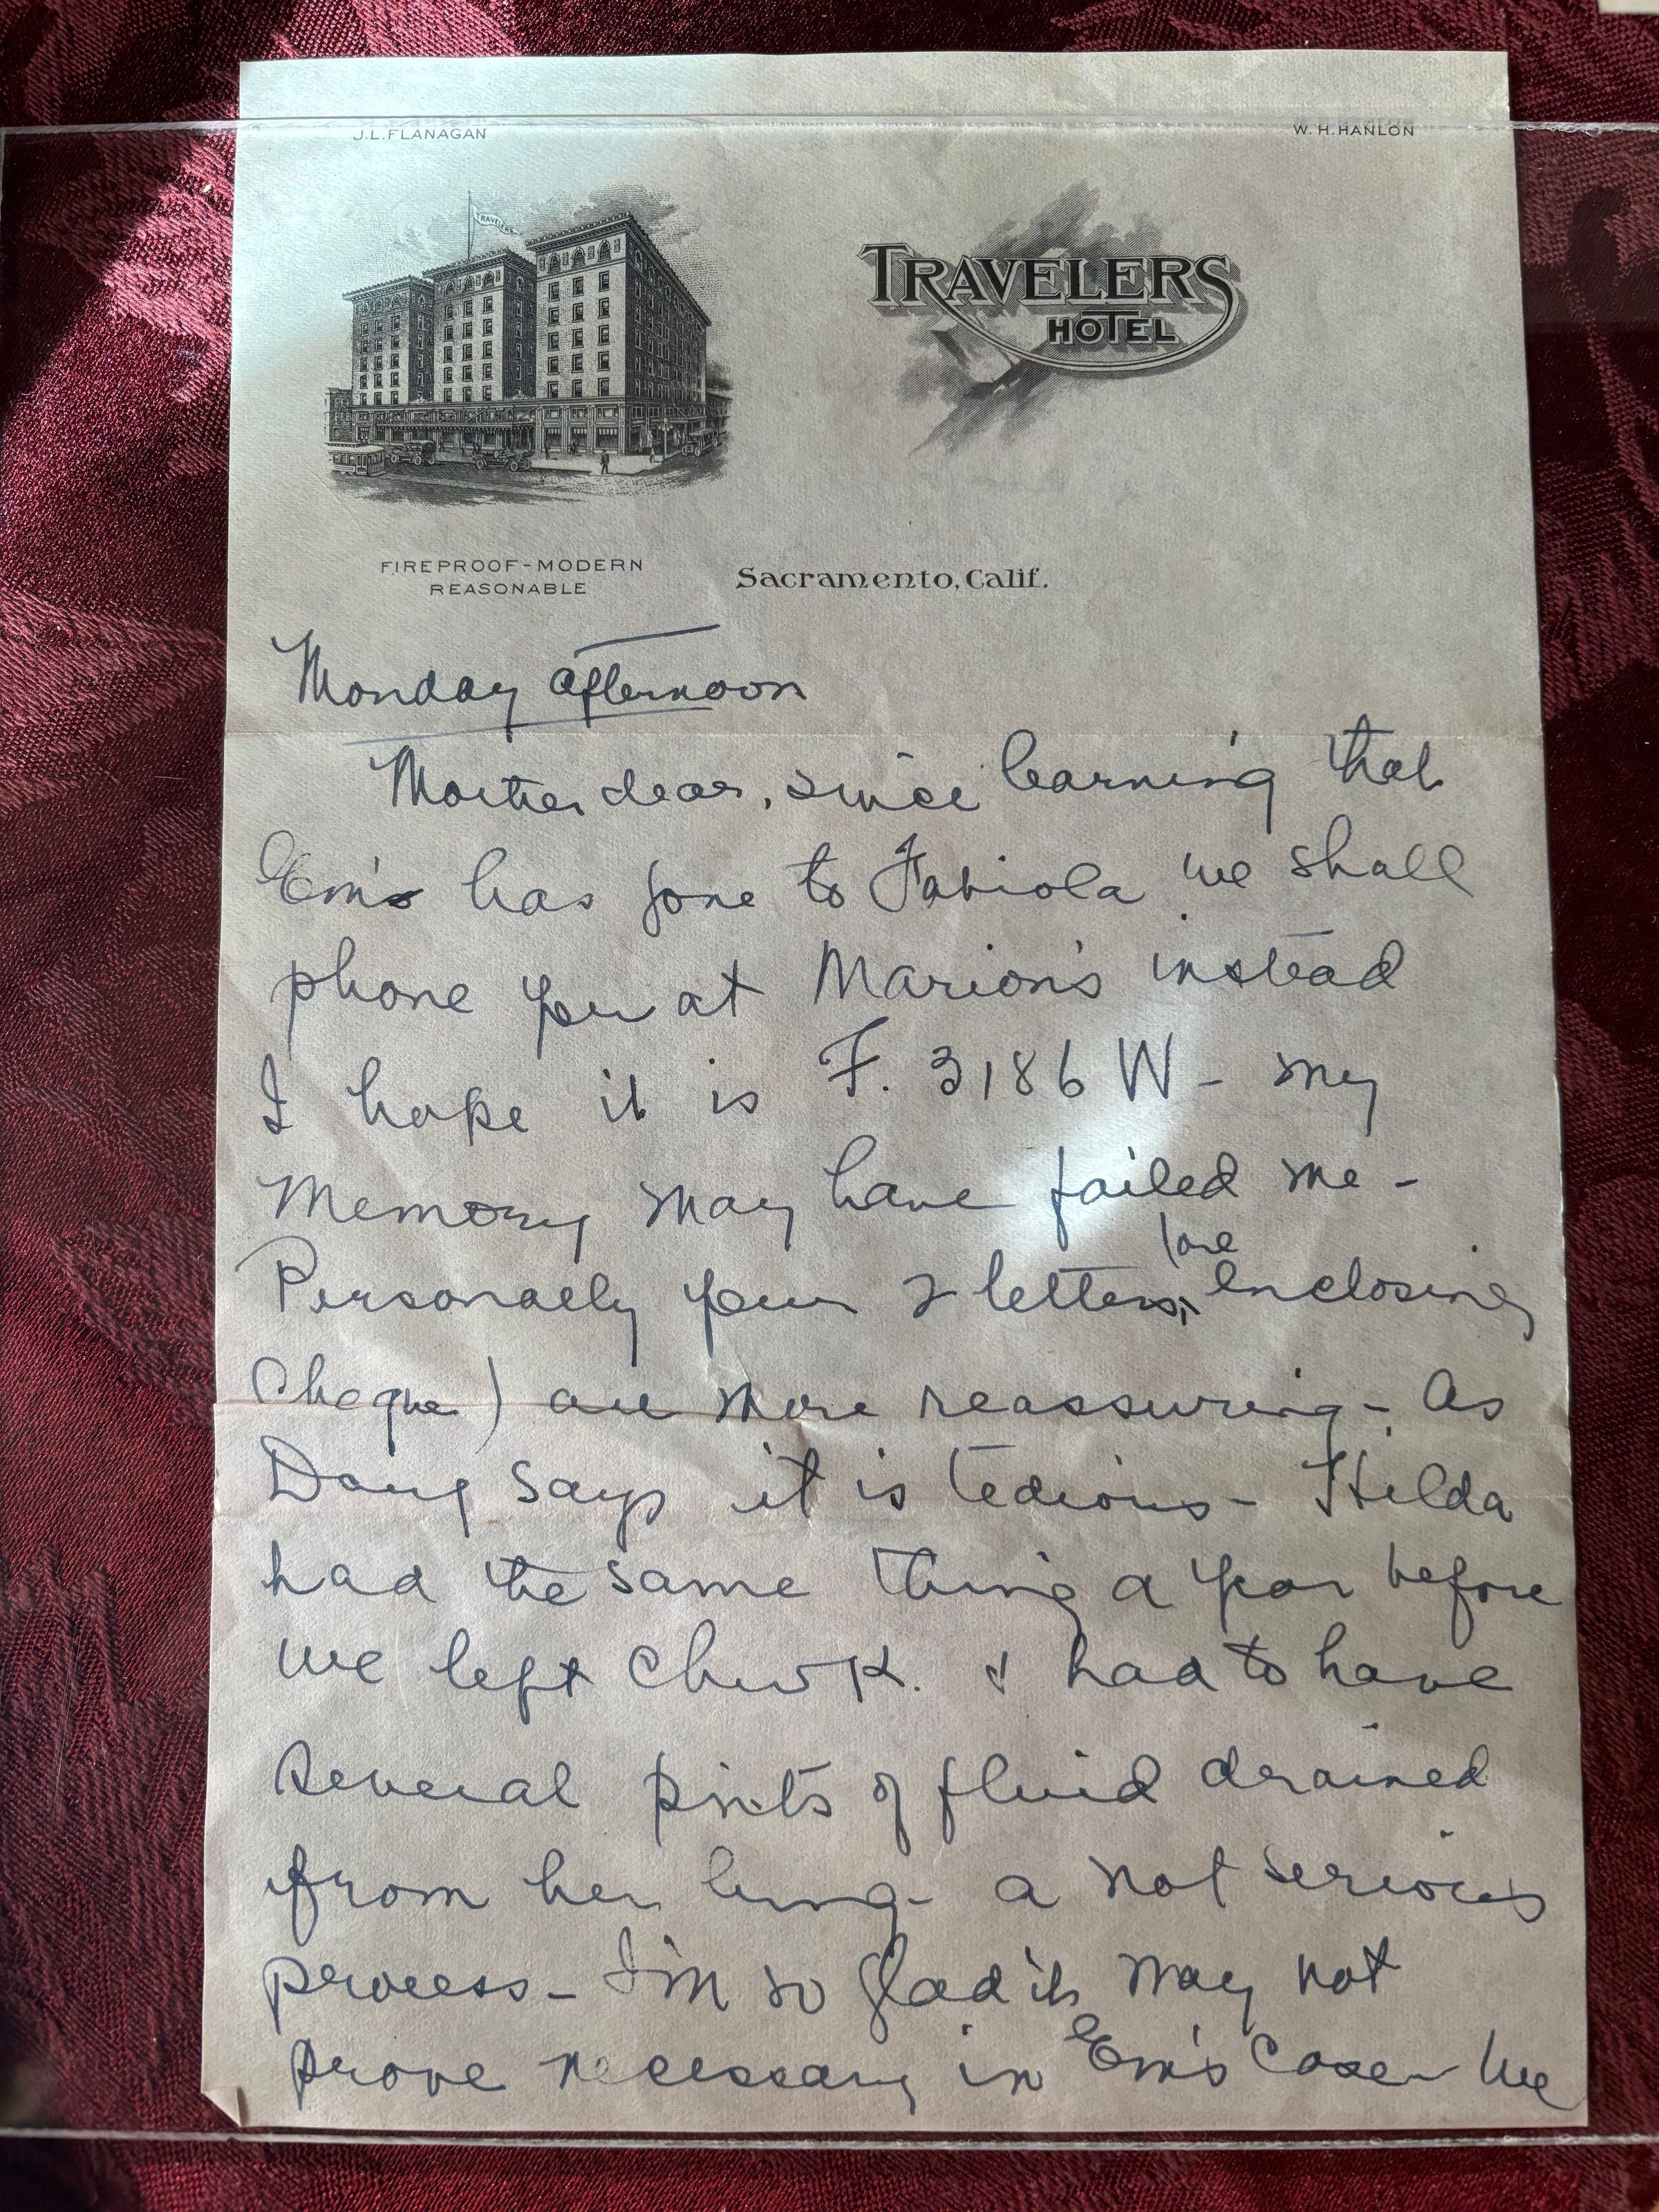 J.L. FLANAGAN
W. H. HANLON
TRAVELERS
TRAVELERS
HOTEL
FIREPROOF-MODERN
REASONABLE
Sacramento, Calif.
Monday afternoon
Mother dear, since learning that
Em's has gone to Fabiola we shall
phone you at Marion's instead
I hope it is F. 3186 W - my
Memory may have failed me -
Personally your 2 letters, (one enclosing
Cheque) are more reassuring - As
Doug says it is tedious - Hilda
had the same thing a year before
we left & had to have
several pints of fluid drained
from her lung - a not serious
process - I'm so glad it may not
prove necessary in Em's case - We